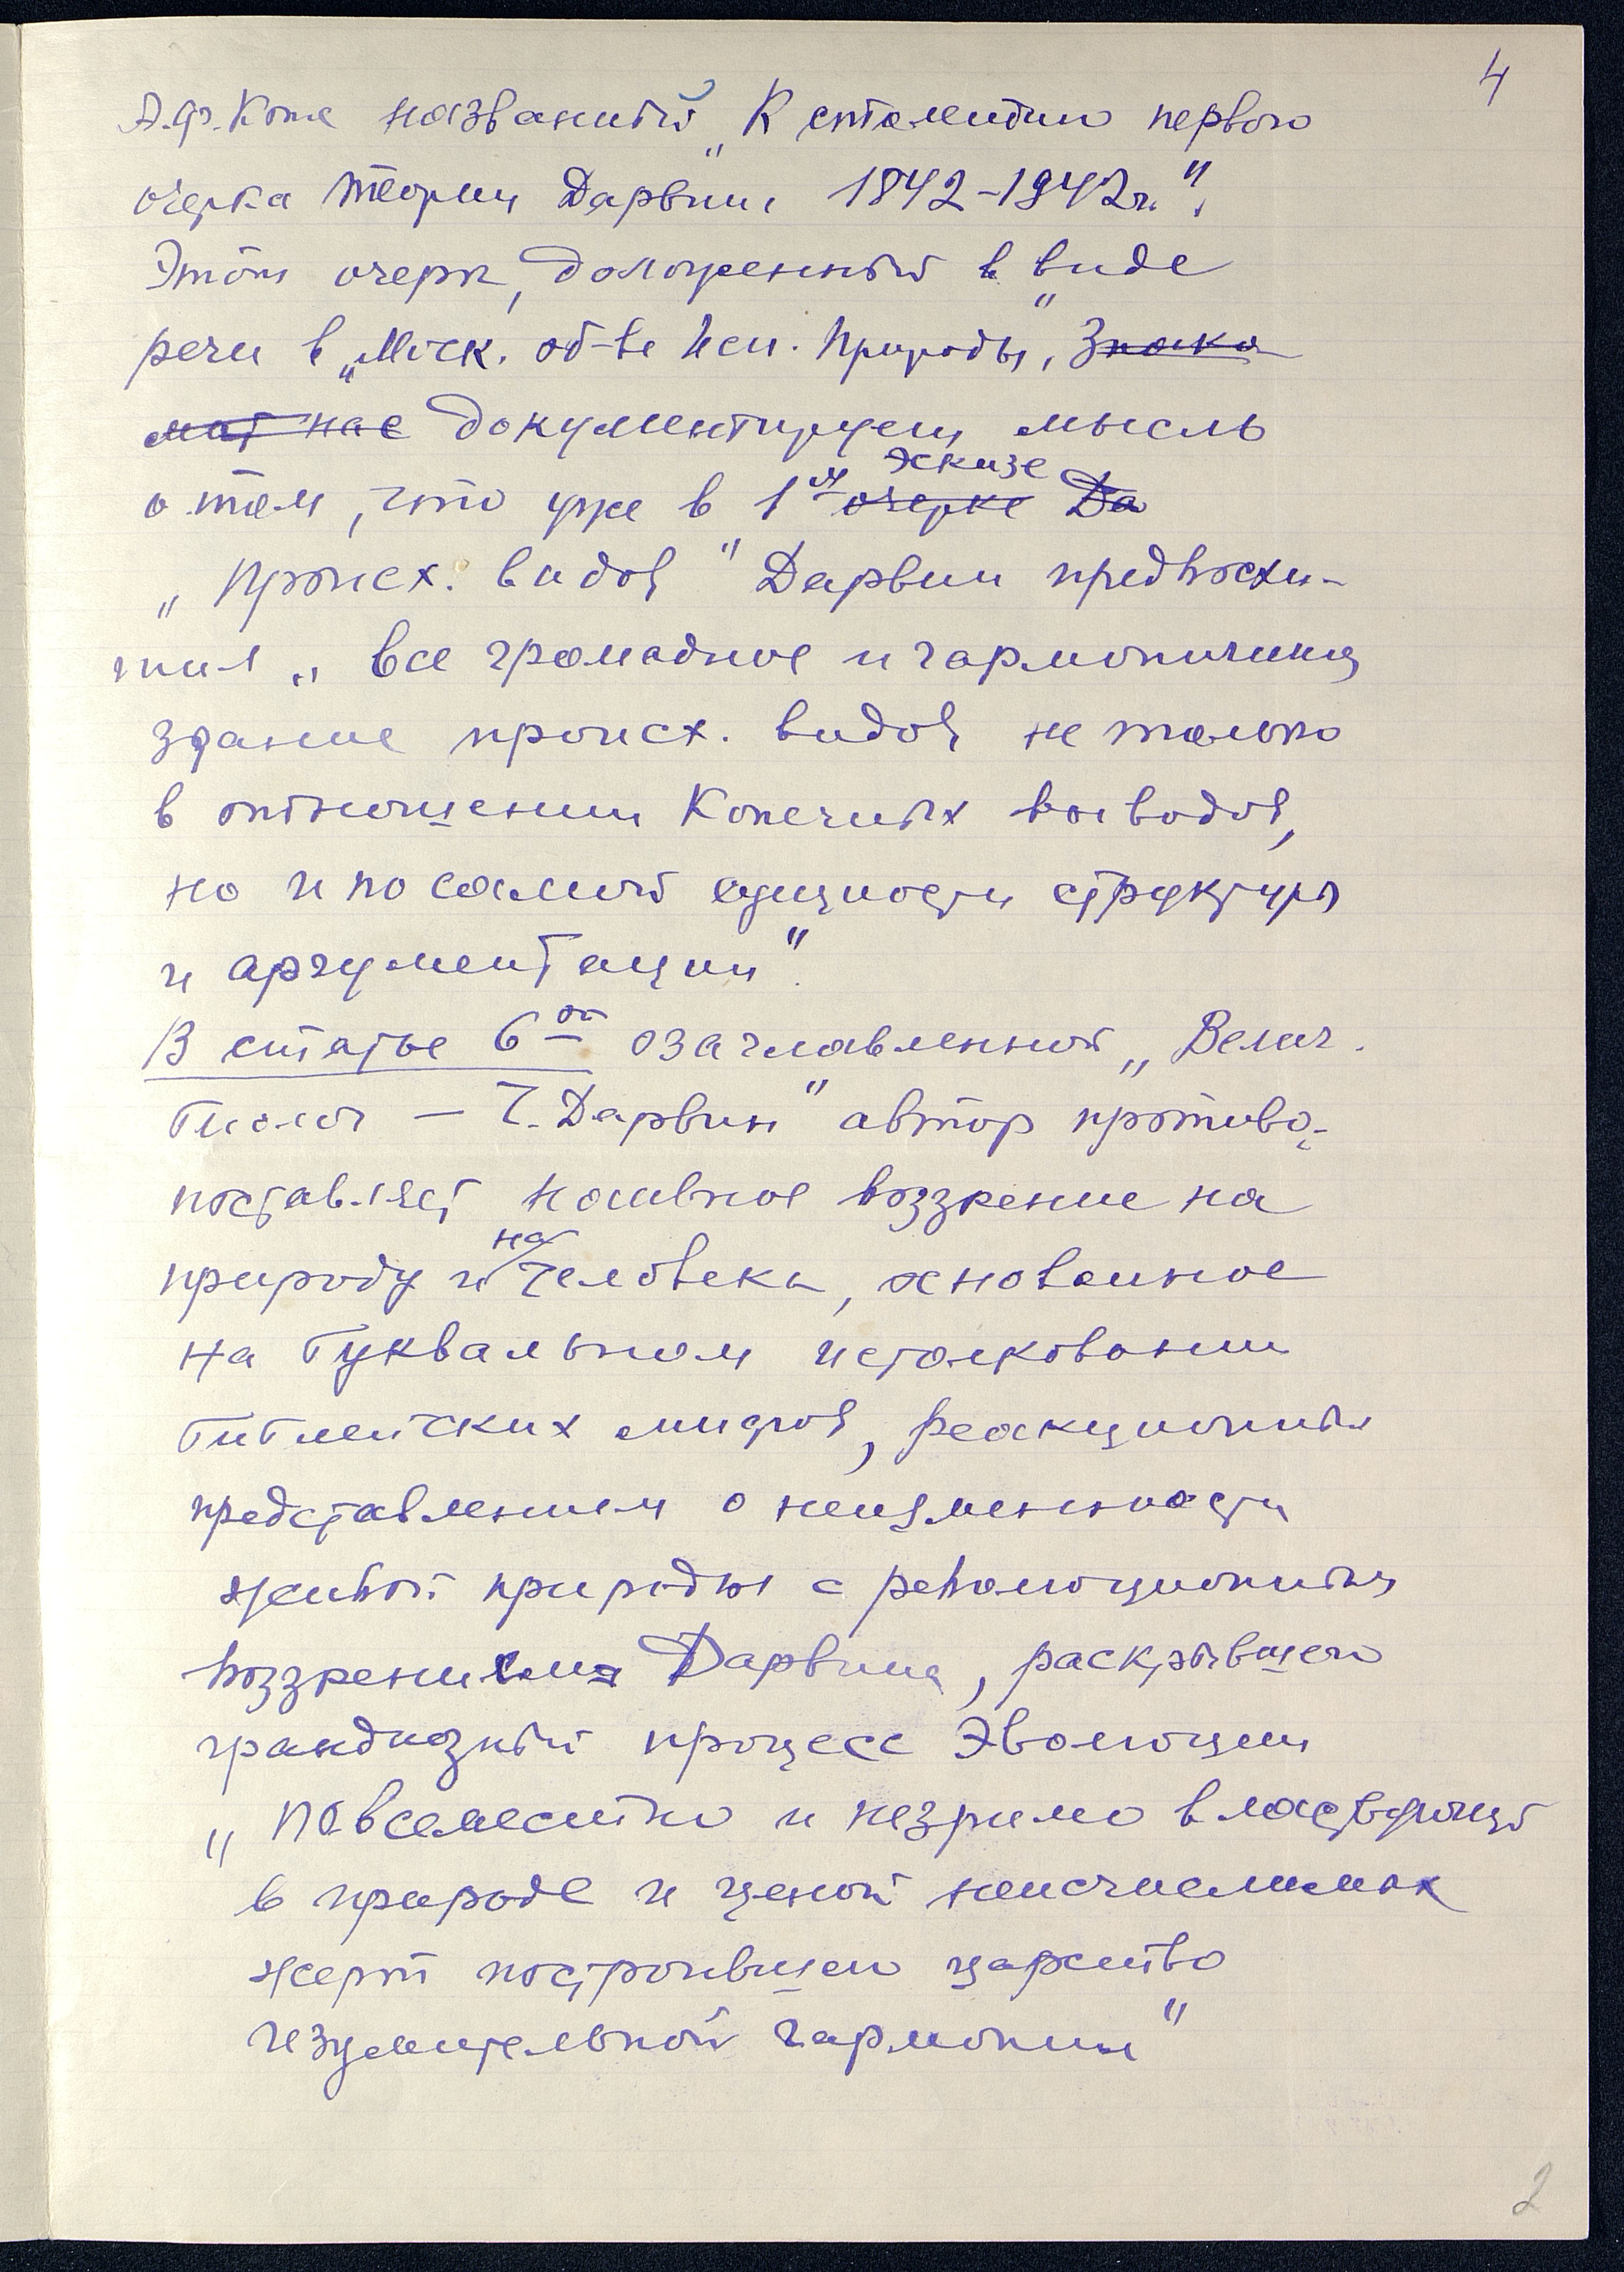 4
А.Ф. Котс названный „К столетию первого
очерка теории Дарвина 1842–1942 г.".
Этот очерк, доложенный в виде
речи в „Моск. об-ве Исп. Природы", Знако
мит нас документирует мысль
о том, что уже в 1м очерке эскизе Да
„Происх. видов" Дарвин предвосхи-
тил „все громадное и гармоничное
здание происх. видов не только
в отношении конечных выводов,
но и по самой сущности структуры
и аргументации".
В статье 6ой озаглавленной „Велич.
биолог — Ч. Дарвин" автор противо-
поставляет наивное воззрение на
природу и на человека, основанное
на буквальном истолковании
библейских мифов, реакционным
представлениям о неизменности
живой природы с революционным
воззрениям Дарвина, раскрывшего
грандиозный процесс Эволюции
„повсеместно и незримо властвующей
в природе и ценой неисчислимых
жертв построившего царство
изумительной гармонии"
2